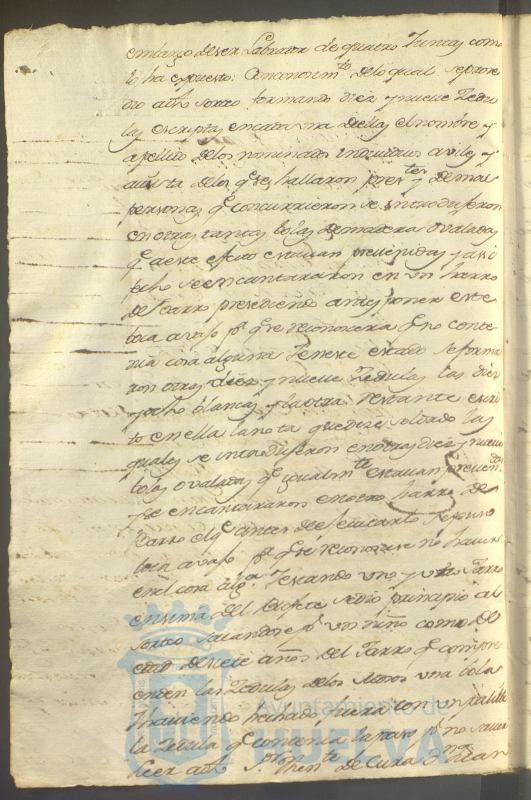 embargo de ser Labrador de quatro Yuntas como
lo ha expuesto: Consonim.to de lo qual se proze
dio a dho sorteo formando diez y nueve Zedu
las escriptas en cada una de ellas el nombre y
apellido de los nominados individuos a vile y
a vista de los q.e se hallaron pres.tes y demas
personas q.e concurrieron se introdujeron
en otras tantas bolas de madera ovaladas
q.e a este efecto estavan prevenidas y asi
fho se encantararon en un Jarro
de barro presediendo antes poner este
boca avajo p.a q.e se reconociera q.e no conte
nia cosa alguna Y en este estado se forma
ron otras diez y nueve Zedulas las diez
y ocho blancas y la otra restante escri
to en ella la nota que dize soldado las
quales se introdujeron en otras diez y nueve
bolas ovaladas q.e igualm.te estavan preveni.das
y se encantararon en otro Jarro de
barro el q.e antes de executarlo se puso
boca avajo p.a q.e se reconociese no haver
en el cosa alg.a Y estando uno y otro Jarro
ensima del Bufete se dio principio al
sorteo sacandose p.r un niño como de
edad de siete años del Jarro q.e compre
enden las Zedulas de los Mozos una bola
Y haviendo hechado fuera con un palillo
la Zedula q.e contenia la rapo p.r no saver
leer a dho S.r Then.te de Cura D.n Juan
Ayuntamiento de
HUELVA